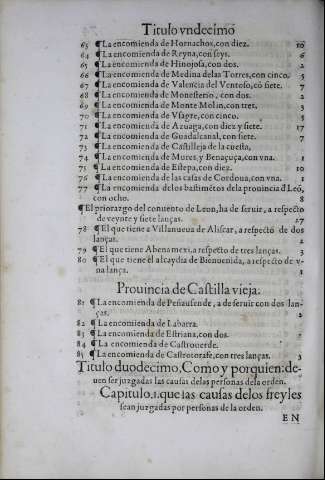 Titulo vndecimo
63 ¶La encomienda de Hornachos, con diez. 10
64 ¶La encomienda de Reyna, con seys. 6
65 ¶La encomienda de Hinojosa, con dos. 2
66 ¶La encomienda de Medina delas Torres, con cinco. 5
67 ¶La encomienda de Valencia del Ventoso, cō siete. 7
68 ¶La encomienda de Monesterio, con dos. 2
69 ¶La encomienda de Monte Molin, con tres. 3
70 ¶La encomienda de Vsagre, con cinco. 5
71 ¶La encomienda de Azuaga, con diez y siete. 17
72 ¶La encomienda de Guadalcanal, con siete. 7
73 ¶La encomienda de Castilleja de la cuesta,
74 ¶La encomienda de Mures, y Benaçuça, con vna. 1
75 ¶La encomienda de Estepa, con diez. 10
76 ¶La encomienda de las casas de Cordoua, con vna. 1
77 ¶La encomienda delos bastimētos dela prouincia d̄ Leō,
con ocho. 8
¶El priorazgo del conuento de Leon, ha de seruir, a respecto
de veynte y siete lanças. 27
78 ¶El que tiene a Villanueua de Aliscar, a respecto de dos
lanças. 2
79 ¶El que tiene Abenamexi, a respecto de tres lanças. 3
80 ¶El que tiene el alcaydia de Bienuenida, a respecto de v-
na lança. 1
Prouincia de Castilla vieja.
81 ¶La encomienda de Peñausende, a de seruir con dos lan-
ças. 2
82 ¶La encomienda de Barra.
83 ¶La encomienda de Estriana, con dos. 2
84 ¶La encomienda de Castrouerde.
85 ¶La encomienda de Castrotorafe, con tres lanças. 3
Titulo duodecimo, Como y por quien: de-
uen ser juzgadas las causas delas personas dela orden.
Capitulo.1. que las causas delos freyles
sean juzgadas por personas de la orden.
EN